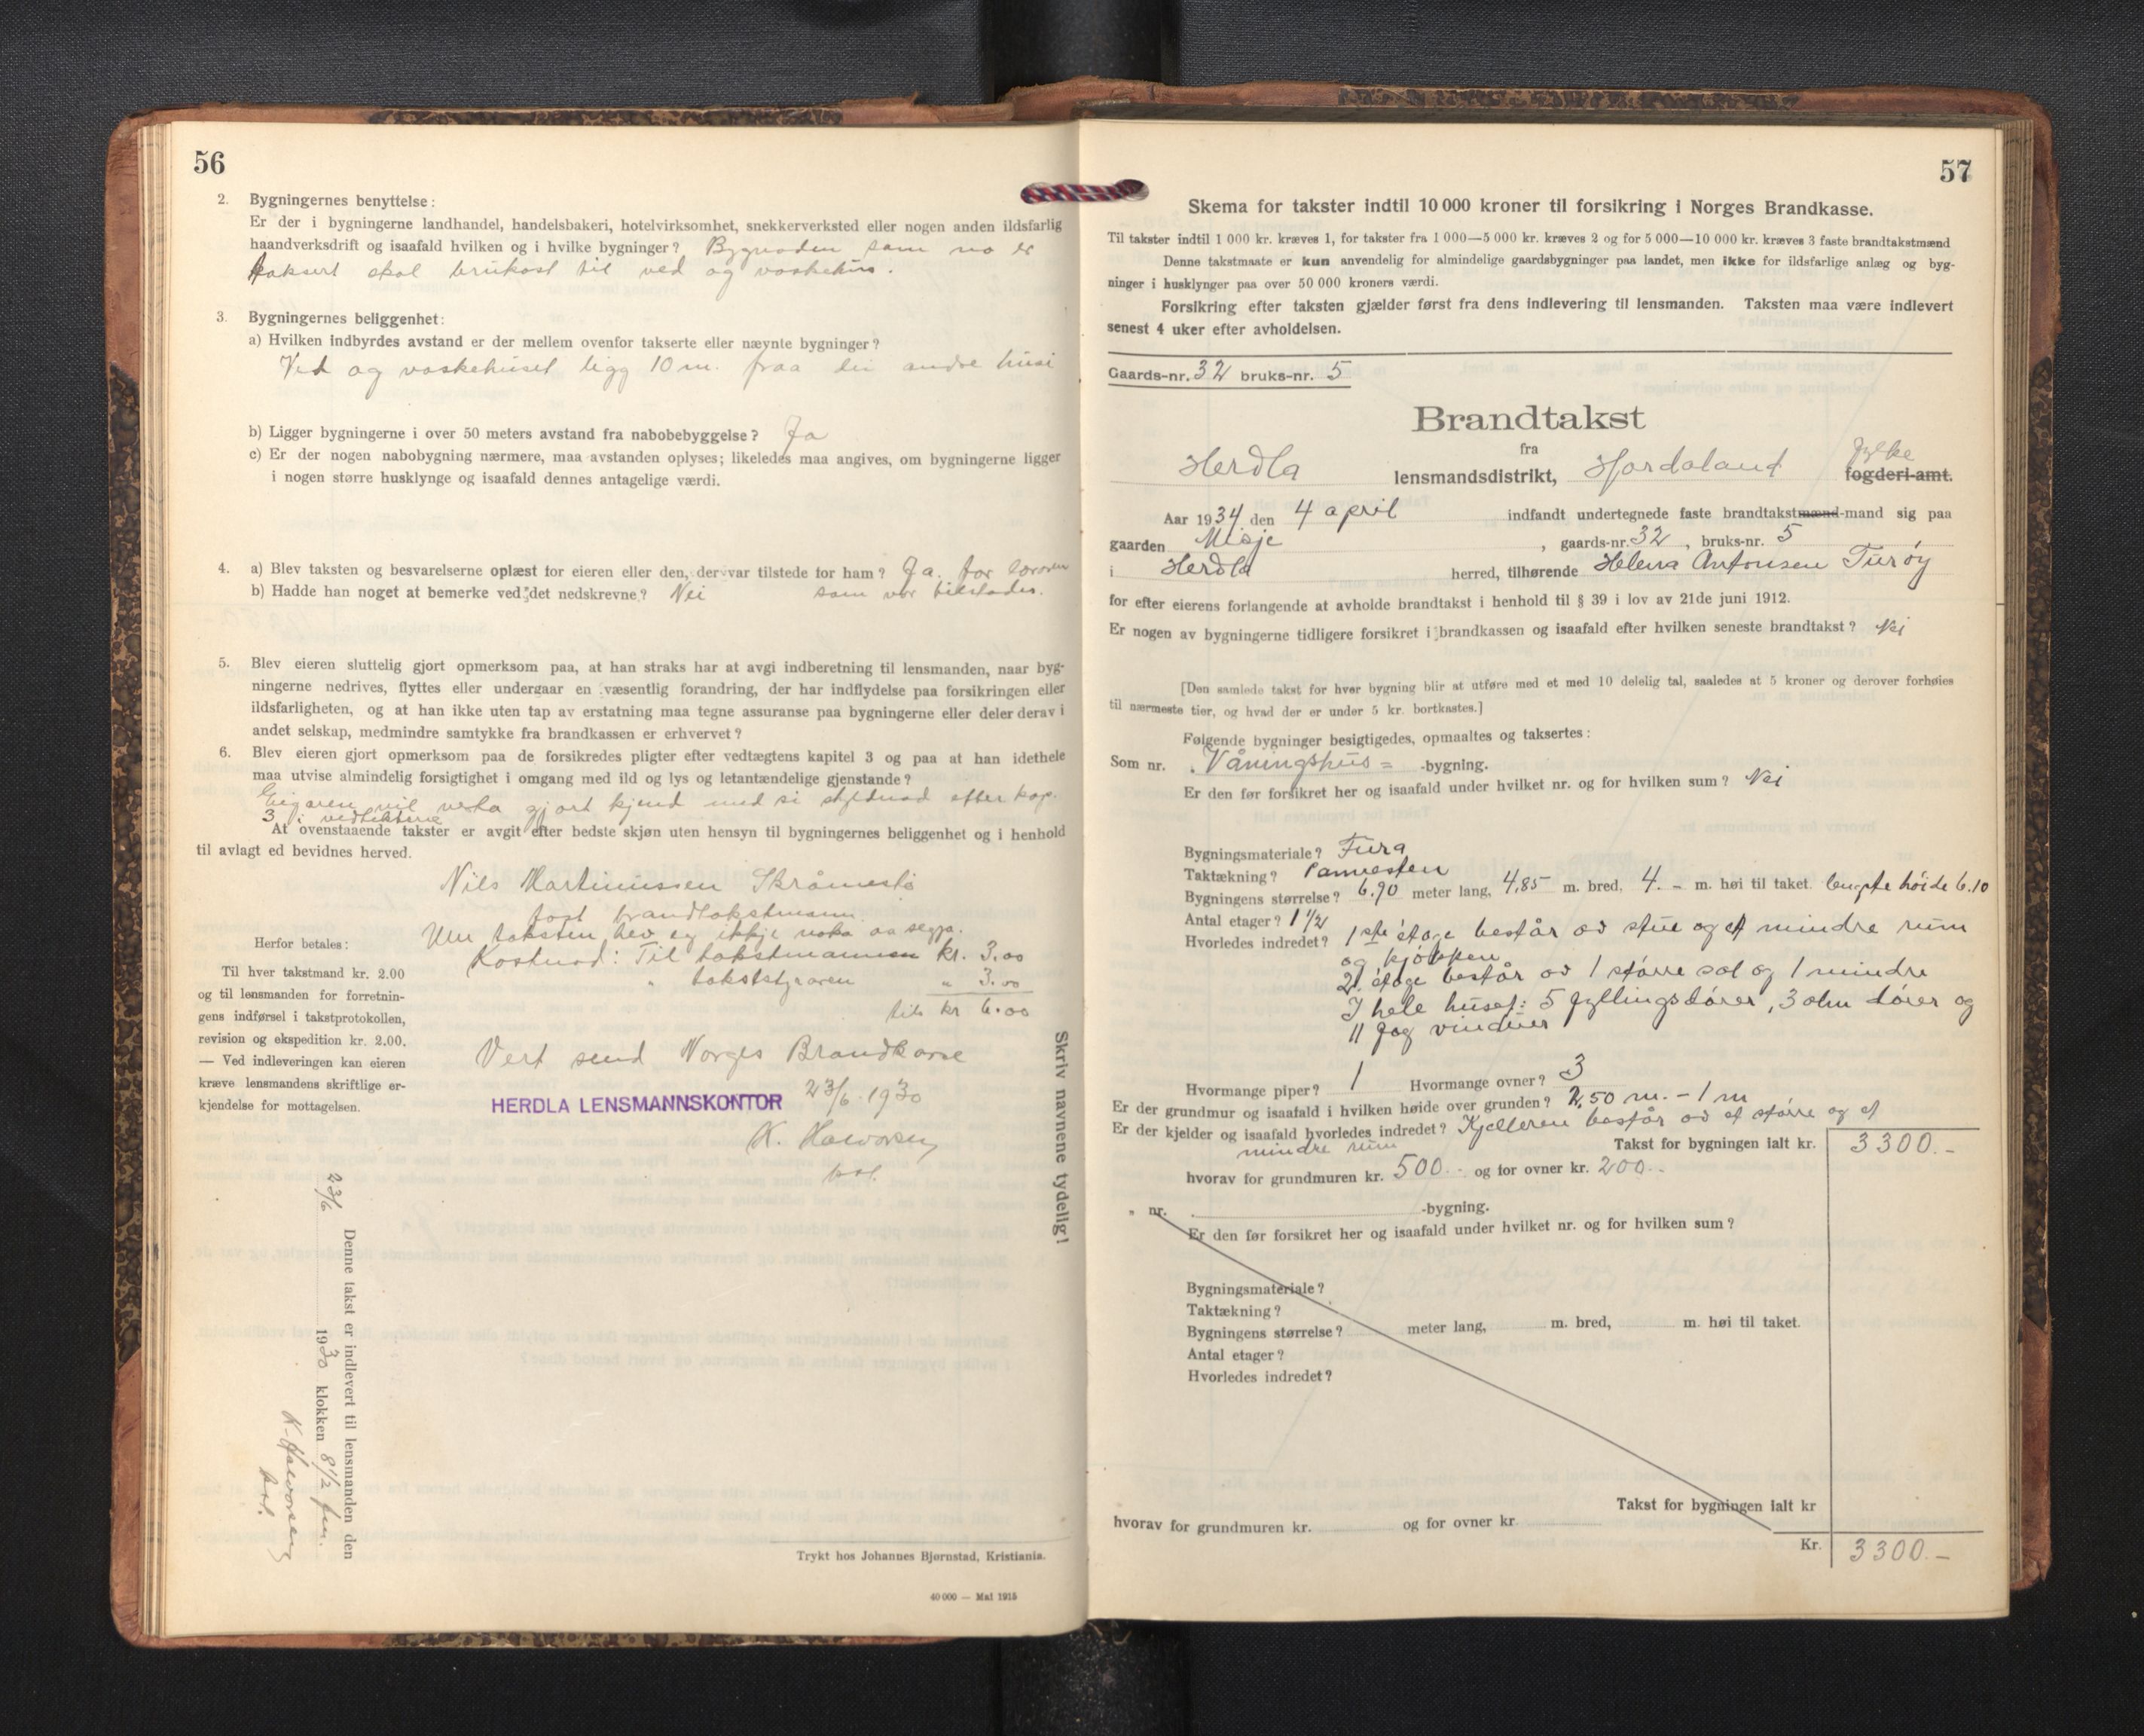 56
2. Bygningernes benyttelse:
Er der i bygningerne landhandel, handelsbakeri, hotelvirksomhet, snekkerverksted eller nogen anden ildsfarlig
haandverksdrift og isaafald hvilken og i hvilke bygninger? Bygnaden som no er
taksert skal brukast til ved og vaskehus.
3. Bygningernes beliggenhet:
a) Hvilken indbyrdes avstand er der mellem ovenfor takserte eller nævnte bygninger?
Ved og vaskehuset ligg 10 m. fraa dei andre husi
b) Ligger bygningerne i over 50 meters avstand fra nabobebyggelse? Ja
c) Er der nogen nabobygning nærmere, maa avstanden oplyses; likeledes maa angives, om bygningerne ligger
i nogen større husklynge og isaafald dennes antagelige værdi.
4. a) Blev taksten og besvarelserne oplæst for eieren eller den, der var tilstede for ham? Ja. for
b) Hadde han noget at bemerke ved det nedskrevne? Nei som var tilstades.
5. Blev eieren sluttelig gjort opmerksom paa, at han straks har at avgi indberetning til lensmanden, naar byg-
ningerne nedrives, flyttes eller undergaar en væsentlig forandring, der har indflydelse paa forsikringen eller
ildsfarligheten, og at han ikke uten tap av erstatning maa tegne assuranse paa bygningerne eller deler derav i
andet selskap, medmindre samtykke fra brandkassen er erhvervet?
6. Blev eieren gjort opmerksom paa de forsikredes pligter efter vedtægtens kapitel 3 og paa at han idethele
maa utvise almindelig forsigtighet i omgang med ild og lys og letantændelige gjenstande?
Eigaren vil verta gjort kjend med si skyldnad efter kap.
3 i vedtektene
At ovenstaaende takster er avgit efter bedste skjøn uten hensyn til bygningernes beliggenhet og i henhold
til avlagt ed bevidnes herved.
Nils Martinussen Skråmestø
fast brandtakstmann.
Um taksten hev eg ikkje noko aa segja.
Kostnad: Til takstmannen kr. 3.00
" takststyraren " 3.00
til kr 6.00
Herfor betales:
Til hver takstmand kr. 2.00
og til lensmanden for forretnin-
gens indførsel i takstprotokollen,
revision og ekspedition kr. 2.00.
— Ved indleveringen kan eieren
kræve lensmandens skriftlige er-
kjendelse for mottagelsen.
Vert send Norges Brandkasse
HERDLA LENSMANNSKONTOR 23/6 1930
K. Halvorsen
bst.
Skriv navnene tydelig!
Denne takst er indlevert til lensmanden den
23/6 1930 klokken 8 1/2 fm.
K. Halvorsen
bst.
Trykt hos Johannes Bjørnstad, Kristiania.
40 000 — Mai 1915
57
Skema for takster indtil 10 000 kroner til forsikring i Norges Brandkasse.
Til takster indtil 1 000 kr. kræves 1, for takster fra 1 000—5 000 kr. kræves 2 og for 5 000—10 000 kr. kræves 3 faste brandtakstmænd
Denne takstmaate er kun anvendelig for almindelige gaardsbygninger paa landet, men ikke for ildsfarlige anlæg og byg-
ninger i husklynger paa over 50 000 kroners værdi.
Forsikring efter taksten gjælder først fra dens indlevering til lensmanden. Taksten maa være indlevert
senest 4 uker efter avholdelsen.
Gaards-nr. 32 bruks-nr. 5
Brandtakst
fra
Herdla lensmandsdistrikt, Hordaland fylke fogderi-amt.
Aar 1934 den 4 april indfandt undertegnede faste brandtakstmænd-mand sig paa
gaarden Misje, gaards-nr. 32, bruks-nr. 5
i Herdla herred, tilhørende Helena Antonsen Turøy
for efter eierens forlangende at avholde brandtakst i henhold til § 39 i lov av 21de juni 1912.
Er nogen av bygningerne tidligere forsikret i brandkassen og isaafald efter hvilken seneste brandtakst? Nei
[Den samlede takst for hver bygning blir at utføre med et med 10 delelig tal, saaledes at 5 kroner og derover forhøies
til nærmeste tier, og hvad der er under 5 kr. bortkastes.]
Følgende bygninger besigtigedes, opmaaltes og taksertes:
Som nr. Våningshus = -bygning.
Er den før forsikret her og isaafald under hvilket nr. og for hvilken sum? Nei
Bygningsmateriale? Fura
Taktækning? Pannesten
Bygningens størrelse? 6.90 meter lang, 4,85 m. bred, 4. - m. høi til taket. lengste höide 6.10
Antal etager? 1 1/2
Hvorledes indredet? 1ste etage består av stue og et mindre rum
og kjøkken
2. etage består av 1 større sal og 1 mindre
I hele huset: 5 fyllingsdører, 3 alm dører og
11 fag vinduer
Hvormange piper? 1 Hvormange ovner? 3
Er der grundmur og isaafald i hvilken høide over grunden? 2,50 m. - 1 m
Er der kjelder og isaafald hvorledes indredet? Kjelleren består av et større og et
mindre rum Takst for bygningen ialt kr. 3300.-
hvorav for grundmuren kr. 500.- og for ovner kr. 200.-
" nr. -bygning.
Er den før forsikret her og isaafald under hvilket nr. og for hvilken sum?
Bygningsmateriale?
Taktækning?
Bygningens størrelse? meter lang, m. bred, m. høi til taket.
Antal etager?
Hvorledes indredet?
Takst for bygningen ialt kr
hvorav for grundmuren kr. og for ovner kr
Kr. 3300.-